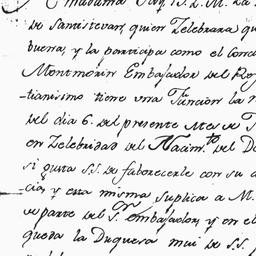 Madama
de Santistevan, quien Zelebrara qu
buena, y la participa como el Con
Montmorin Embajador del Rey
tianisimo tiene una Funcion la n
del dia 6. del presente Mes de
en Zelebridad del Nacim.to del De
si gusta S.S. de faborecerle con su a
cia, y esta misma suplica a M.
de parte del S.r embajador, y en el
queda la Duquesa mui de S.S.